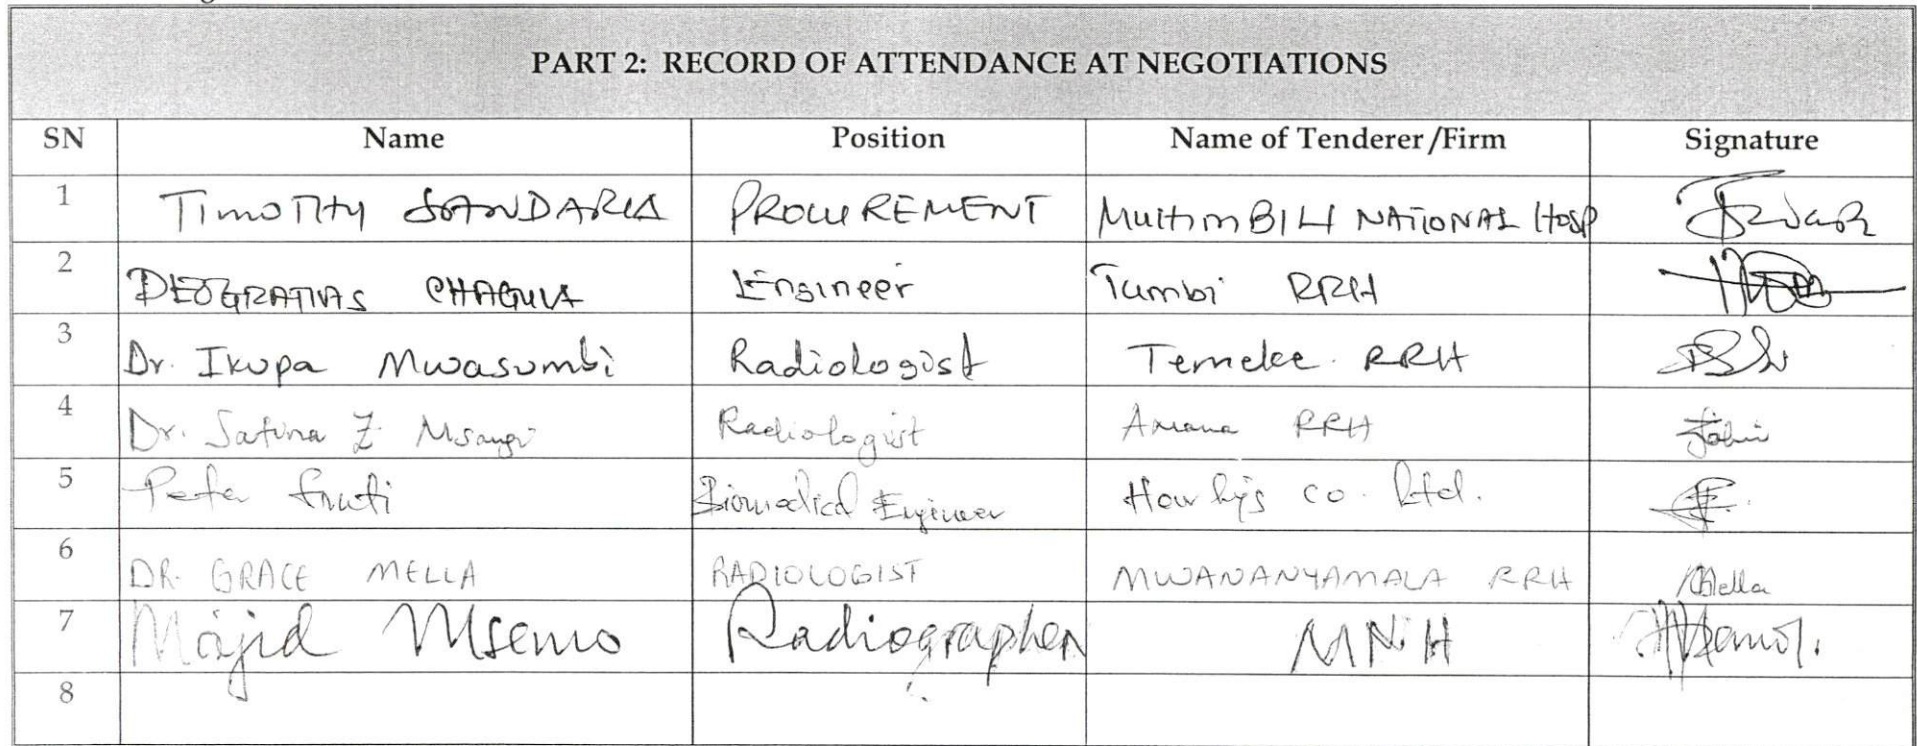 PART 2: RECORD OF ATTENDANCE AT NEGOTIATIONS
SN Name Position Name of Tenderer/Firm Signature
1 Timothy PROCUREMENT NATIONAL Hosp
2 DEOGRATIAS CHAGULA Engineer Tumbi RRH
3 Dr. Ikupa Mwasumbi Radiologist Temeke RRH
4 Dr. Safina Z Msangi Radiologist Amana RRH
5 Biomedical Engineer co. Ltd.
6 DR. GRACE MELLA RADIOLOGIST MWANANYAMALA RRH Mella
7 Majid Msemo Radiographer MNH
8